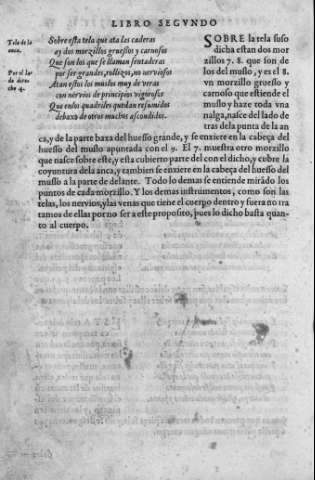 LIBRO SEGVNDO
Tela de la
anca.
Por el la
do dere
cho 4.
Sobre esta tela que ata las caderas
ay dos morzillos gruessos y carnosos
Que son los que se llaman sentaderas
por ser grandes, rollizos, no nerviosos
Atan estos los muslos muy de veras
con nervios de principios vigorosos
Que enlos quadriles quedan resumidos
debaxo de otros muchos ascondidos.
SOBRE la tela suso
dicha estan dos mor
zillos 7. 8. que son de
los del muslo, y es el 8.
vn morzillo gruesso y
carnoso que estiende el
muslo y haze toda vna
nalga, nasce del lado de
tras dela punta de la an
ca, y de la parte baxa del huesso grande, y se enxire en la cabeça del
huesso del muslo apuntada con el 9. El 7. muestra otro morzillo
que nasce sobre este, y esta cubierto parte del con el dicho, y cubre la
coyuntura dela anca, y tambien se enxire en la cabeça del huesso del
muslo a la parte de delante. Todo lo demas se entiende mirãdo los
puntos de cada morzillo. Y los demas instrumentos, como son las
telas, los nervios, y las venas que tiene el cuerpo dentro y fuera no tra
tamos de ellas por no ser a este proposito, pues lo dicho basta quan-
to al cuerpo.